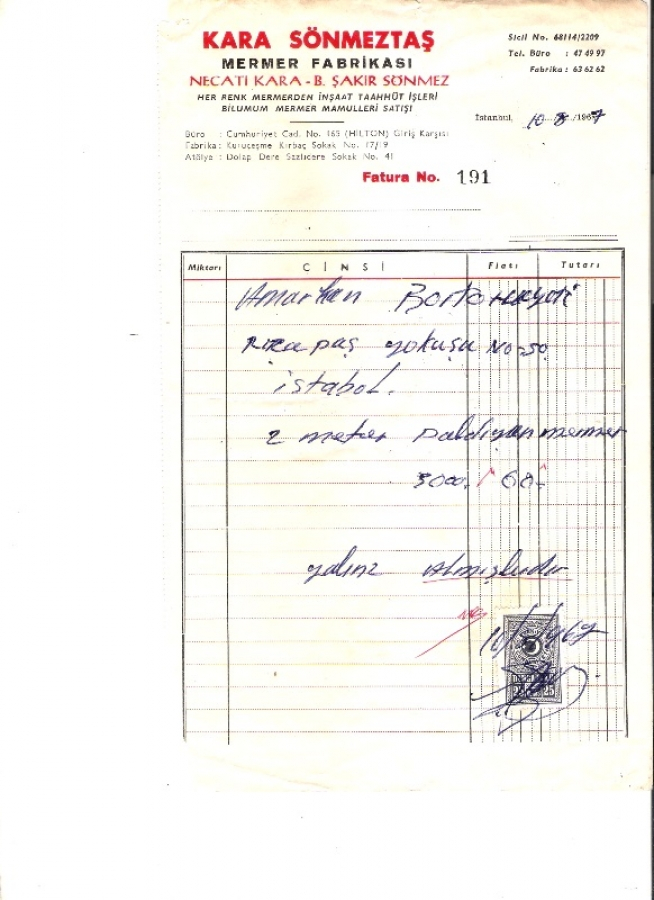 KARA SÖNMEZTAŞ
MERMER FABRİKASI
NECATİ KARA - B. ŞAKİR SÖNMEZ
HER RENK MERMERDEN İNŞAAT TAAHHÜT İŞLERİ
BİLUMUM MERMER MAMULLERİ SATIŞI
Sicil No. 68114/2209
Tel. Büro : 47 49 97
Fabrika : 63 62 62
İstanbul, 10 8 1967
Büro : Cumhuriyet Cad. No. 165 (HİLTON) Giriş Karşısı
Fabrika : Kuruçeşme Kırbaç Sokak No. 17/19
Atölye : Dolap Dere Sazlıdere Sokak No. 41
Fatura No. 191
Miktarı CİNSİ Fiatı Tutarı
yokuşu No=50
istabol.
2 meter mermer
3000. 60-
yalınız Atmışliradır